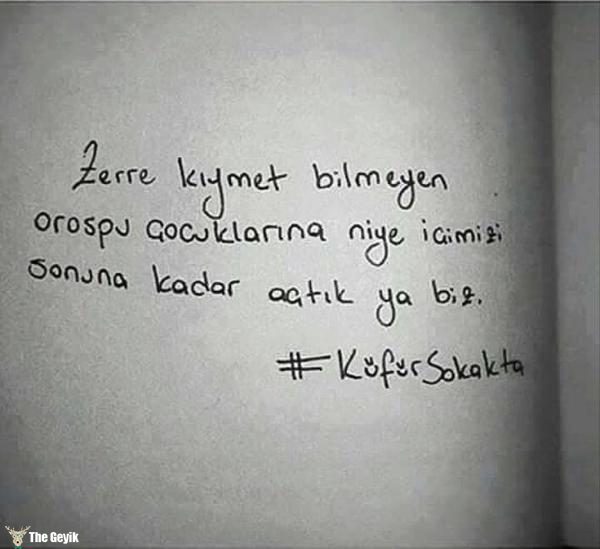 Zerre kıymet bilmeyen
orospu çocuklarına niye içimizi
sonuna kadar açtık ya biz.
#KüfürSokakta
The Geyik